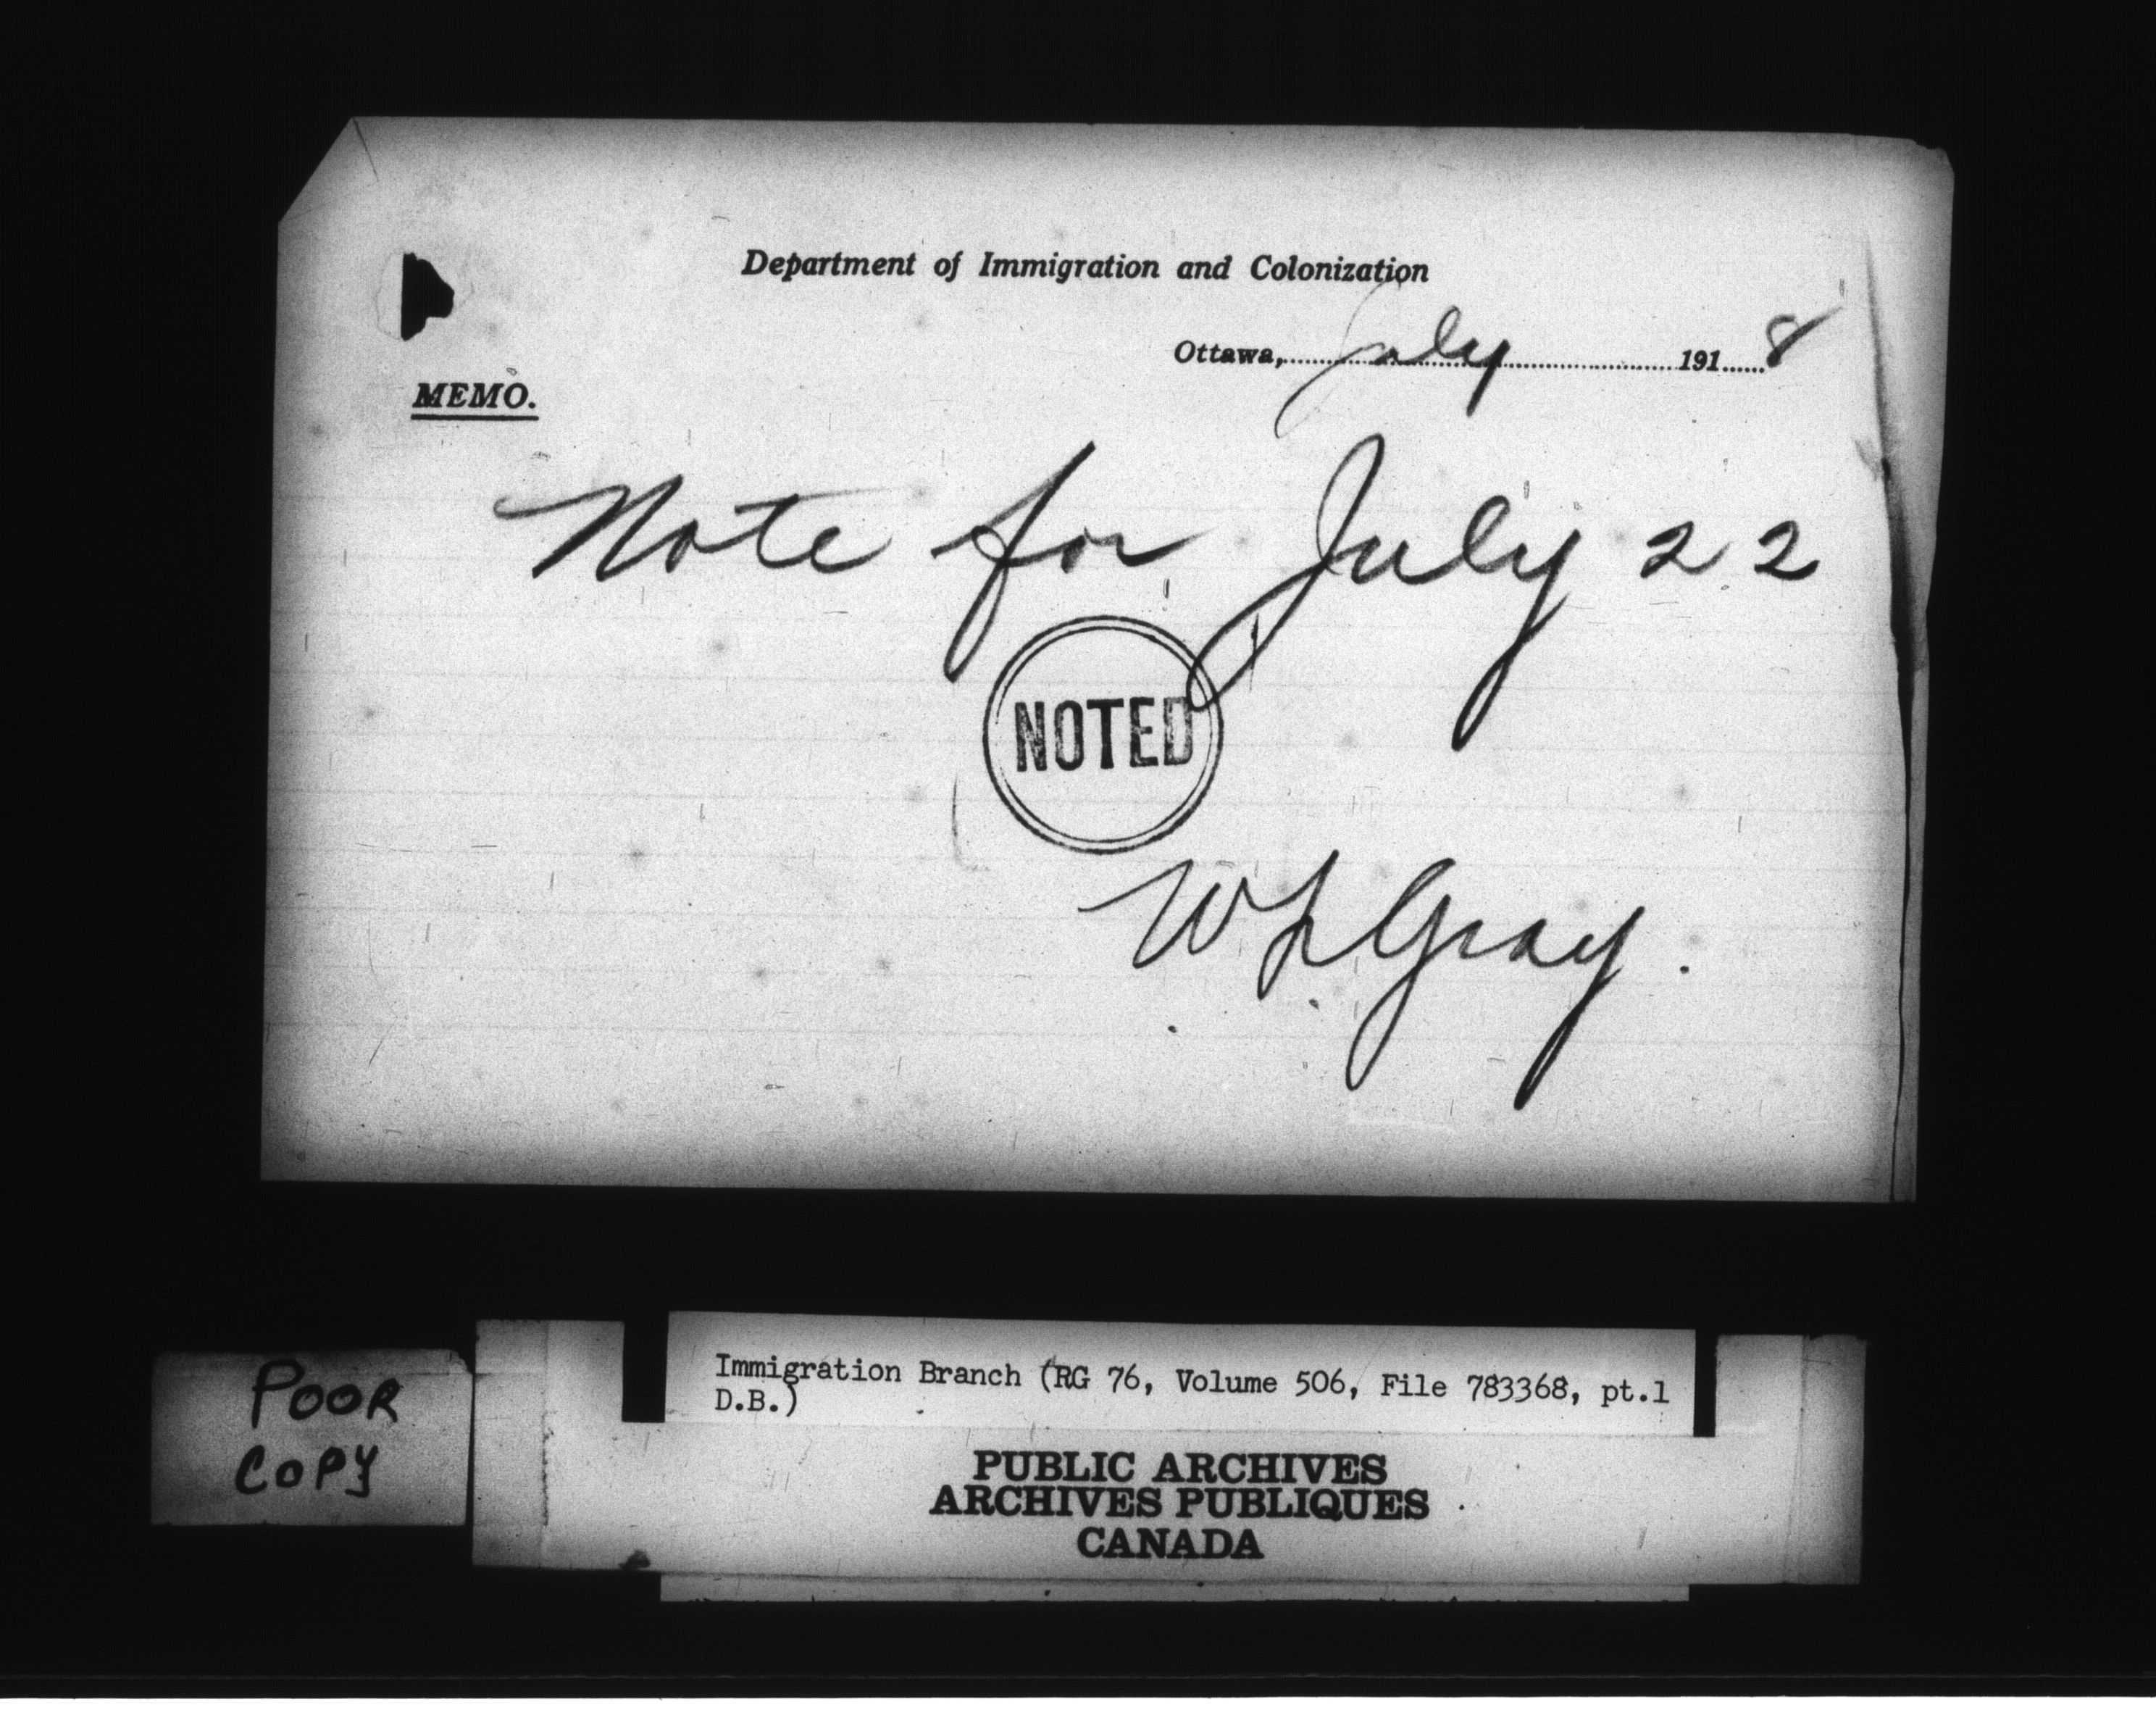 Department of Immigration and Colonization
Ottawa, July 1918
MEMO.
Note for July 22
NOTED
WLGray.
POOR
COPY
Immigration Branch (RG 76, Volume 506, File 783368, pt.1
D.B.)
PUBLIC ARCHIVES
ARCHIVES PUBLIQUES
CANADA